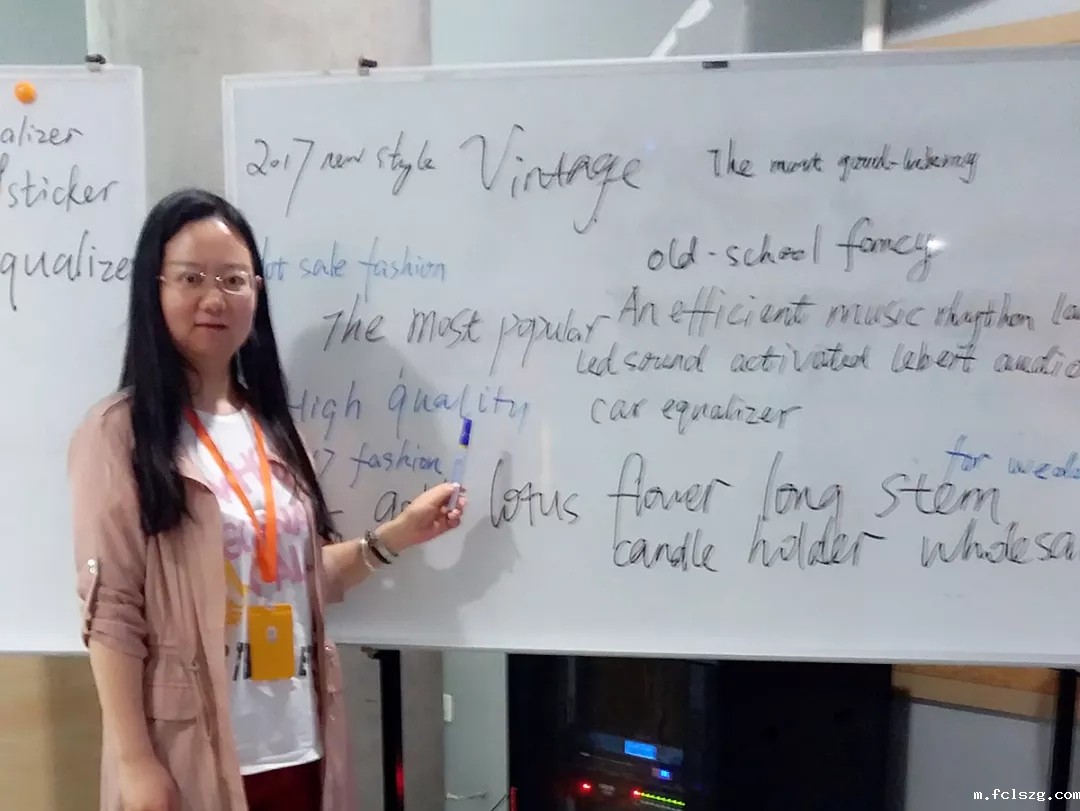 alizer
sticker
qualize
2017 new style Vintage The most good-lokeny
old-school fancy
ot sale fashion
The most popular
An efficient music rhythm la
led sound activated audio
High quality
car equalizer
7 fashion
for wedd
lotus flower long stem
candle holder wholesa
m.fclszg.com